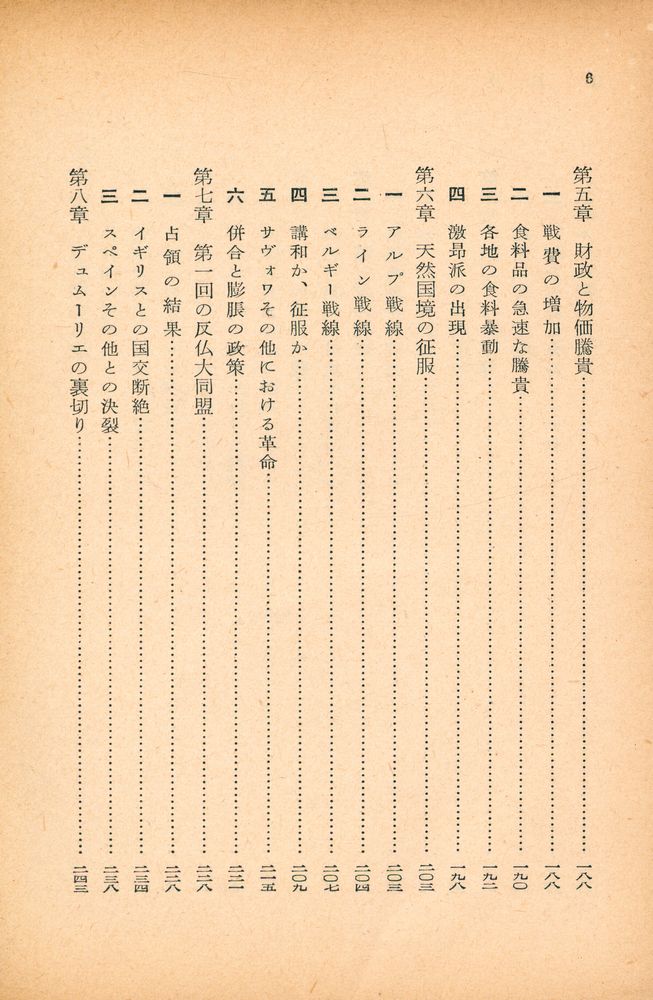 6
第五章 財政と物価騰貴……一八八
一 戦費の増加……一八八
二 食料品の急速な騰貴……一九〇
三 各地の食料暴動……一九二
四 激昂派の出現……一九八
第六章 天然国境の征服……二〇三
一 アルプ戦線……二〇三
二 ライン戦線……二〇四
三 ベルギー戦線……二〇七
四 講和か、征服か……二〇九
五 サヴォワその他における革命……二一五
六 併合と膨脹の政策……二二一
第七章 第一回の反仏大同盟……二二八
一 占領の結果……二二八
二 イギリスとの国交断絶……二三四
三 スペインその他との決裂……二三八
第八章 デュムーリエの裏切り……二四三